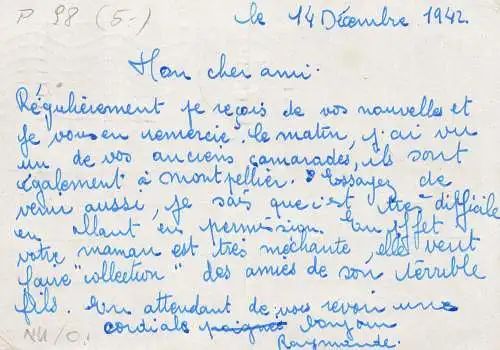 P 98 (5-)
le 14 Décembre 1942.
Mon cher ami.
Régulièrement je reçois de vos nouvelles et
je vous en remercie. Ce matin, j'ai vu
un de vos anciens camarades, ils sont
également à Montpellier. Essayez de
venir aussi, je sais que c'est très difficile
en allant en permission. En effet
votre maman est très méchante, elle veut
faire "collection" des amies de son terrible
fils. En attendant de vous revoir une
cordiale poignet bonjour
Raymonde.